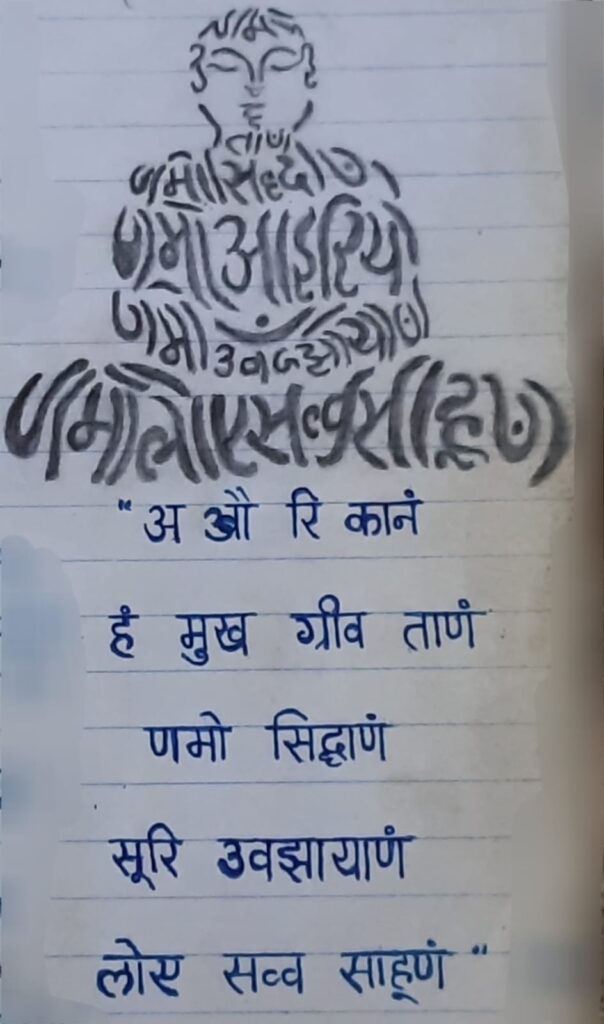 णमो
अ रि
हं
ताणं
णमो सिद्धाणं
णमो आइरियाणं
णमो उवज्झायाणं
णमो लोए सव्व साहूणं
"अ औ रि कानं
हं मुख ग्रीव ताणं
णमो सिद्धाणं
सूरि उवझायाणं
लोए सव्व साहूणं"